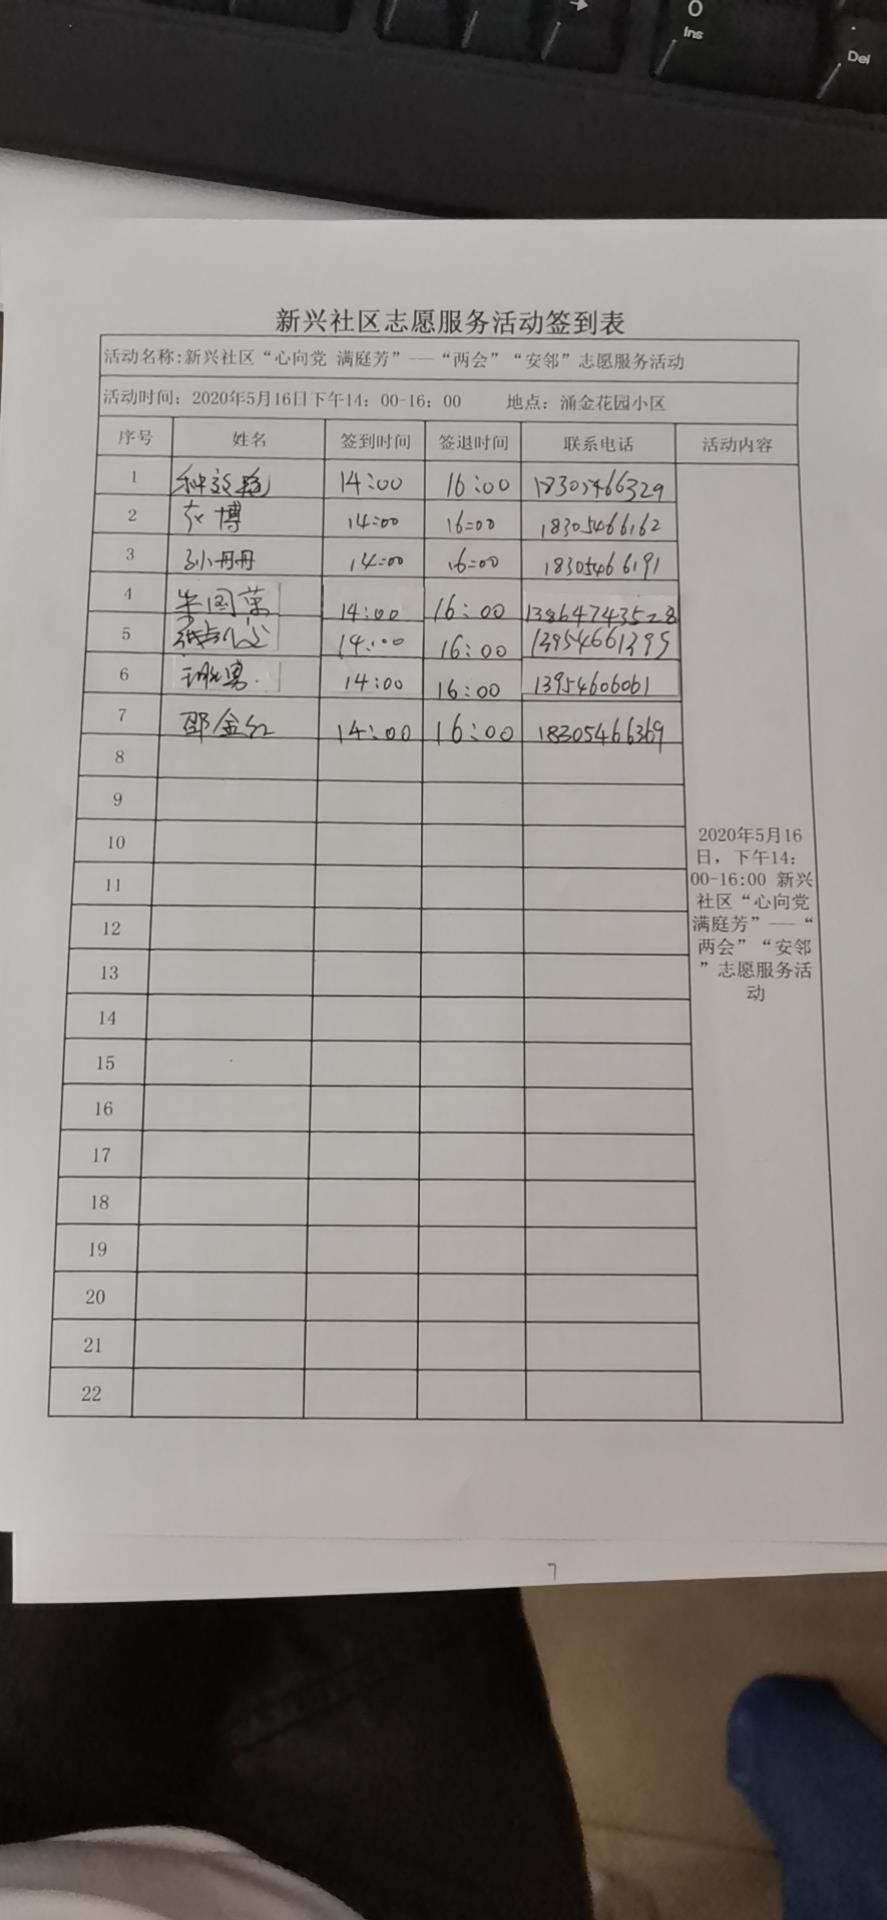 0
Ins
Del
新兴社区志愿服务活动签到表
活动名称:新兴社区“心向党 满庭芳”——“两会”“安邻”志愿服务活动
活动时间：2020年5月16日下午14：00-16：00 地点：涌金花园小区
序号 姓名 签到时间 签退时间 联系电话 活动内容
1 14:00 16:00 18305466329
2 张博 14:00 16:00 18305466162
3 孙丹丹 14:00 16:00 18305466191
4 牛国英 14:00 16:00 13864743528
5 14:00 16:00 13954661395
6 14:00 16:00 13954606061
7 邵金红 14:00 16:00 18305466369
8
9
10
11
12
13
14
15
16
17
18
19
20
21
22
2020年5月16
日，下午14：
00-16:00 新兴
社区“心向党
满庭芳”——“
两会”“安邻
”志愿服务活
动
7